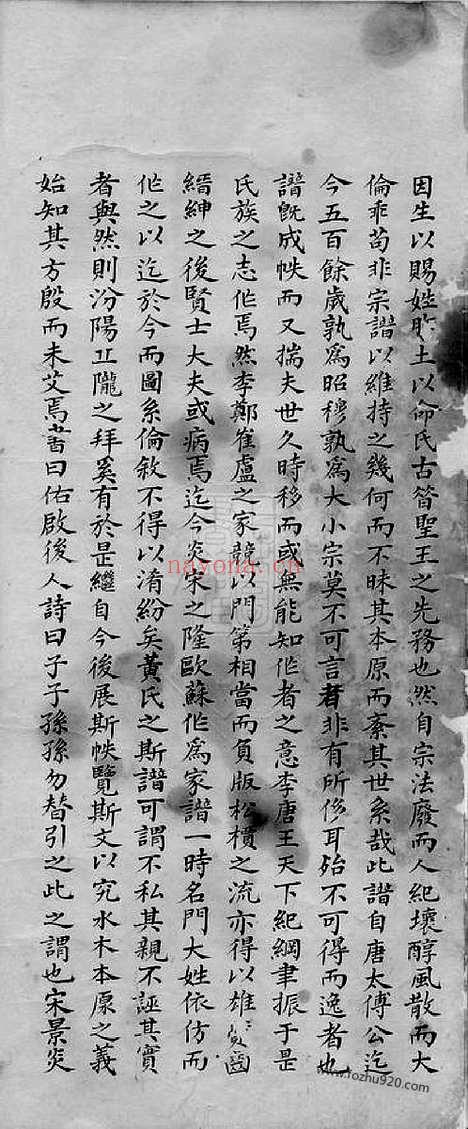 因生以賜姓胙土以命氏古昔聖王之先務也然自宗法廢而人紀壞醇風散而大
倫乖苟非宗譜以維持之幾何而不昧其本原而紊其世系哉此譜自唐太傅公迄
今五百餘歲孰為昭穆孰為大小宗莫不可言者非有所侈耳殆不可得而逸者也
譜既成帙而又揣夫世久時移而或無能知作者之意李唐王天下紀綱聿振于是
氏族之志作焉然李鄭崔盧之家競以門第相當而負版松檟之流亦得以雄齒
縉紳之後賢士大夫或病焉迄今炎宋之隆歐蘇作為家譜一時名門大姓依仿而
作之以迄於今而圖系倫敘不得以淆紛矣黃氏之斯譜可謂不私其親不誣其實
者與然則汾陽丘隴之拜奚有於是繼自今後展斯帙覽斯文以究水木本原之義
始知其方殷而未艾焉書曰佑啟後人詩曰子子孫孫勿替引之此之謂也宋景炎
nayona.cn
www.fozhu920.com